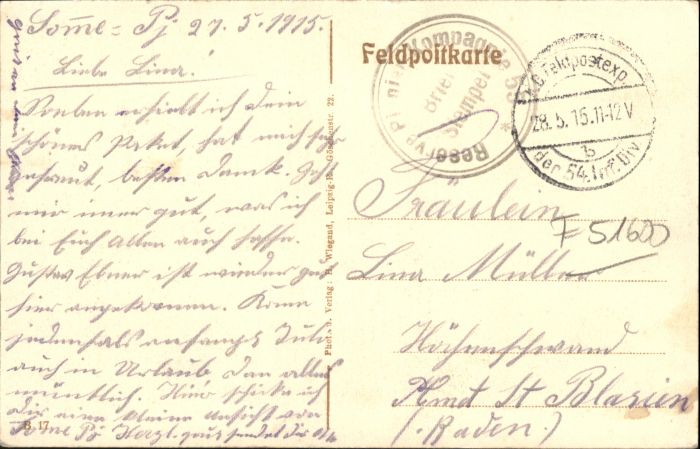 Somme-Pÿ 27.5.1915.
Liebe Lina!
Soeben erhielt ich Dein
schönes Paket, hat mich sehr
gefreut, besten Dank.
mir immer gut, was ich
bei Euch Allen auch hoffe.
Gustav Ebner ist wieder gut
hier angekommen. Komme
jedenfalls anfangs Juli
auch in Urlaub dan alles
mündlich. Hier schicke ich
Dir eine kleine Ansicht von
Somme Pÿ Herzl. gruß sendet dir
B. 17
Phot. u. Verlag: H. Wiegand, Leipzig-R., Göschenstr. 22.
Feldpostkarte
Reserve Pionier Kompagnie 53
Brief
Stempel
K.D. Feldpostexp.
28.5.15.11-12V
b
der 54. Inf. Div.
Fräulein
F 51600
Lina Müller
Höchenschwand
Amt St Blasien
(Baden)